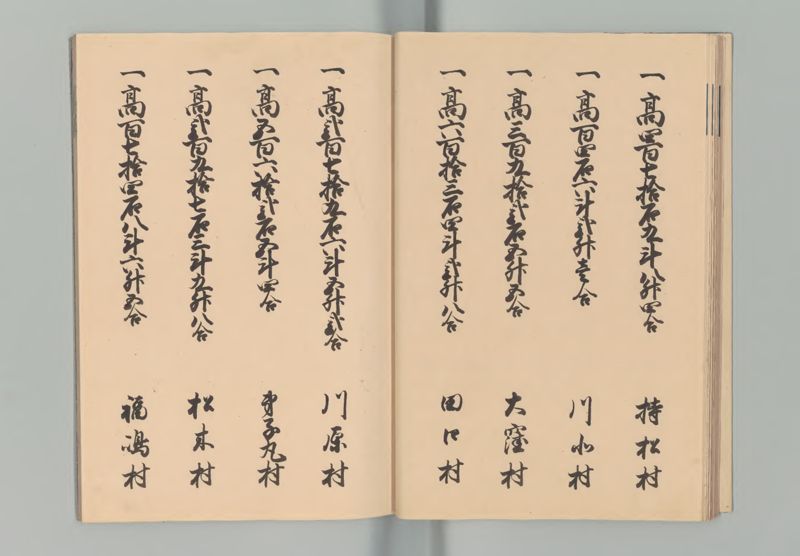 一高四百七拾石九斗八升四合　持松村
一高百四石六斗弐升壱合　川北村
一高三百九拾弐石五升五合　大窪村
一高六百拾三石四斗弐升八合　田口村
一高弐百七拾九石六斗五升弐合　川原村
一高五百六拾弐石五斗四合　弟子丸村
一高弐百九拾七石三斗九升八合　松末村
一高百七拾四石八斗六升五合　福嶋村